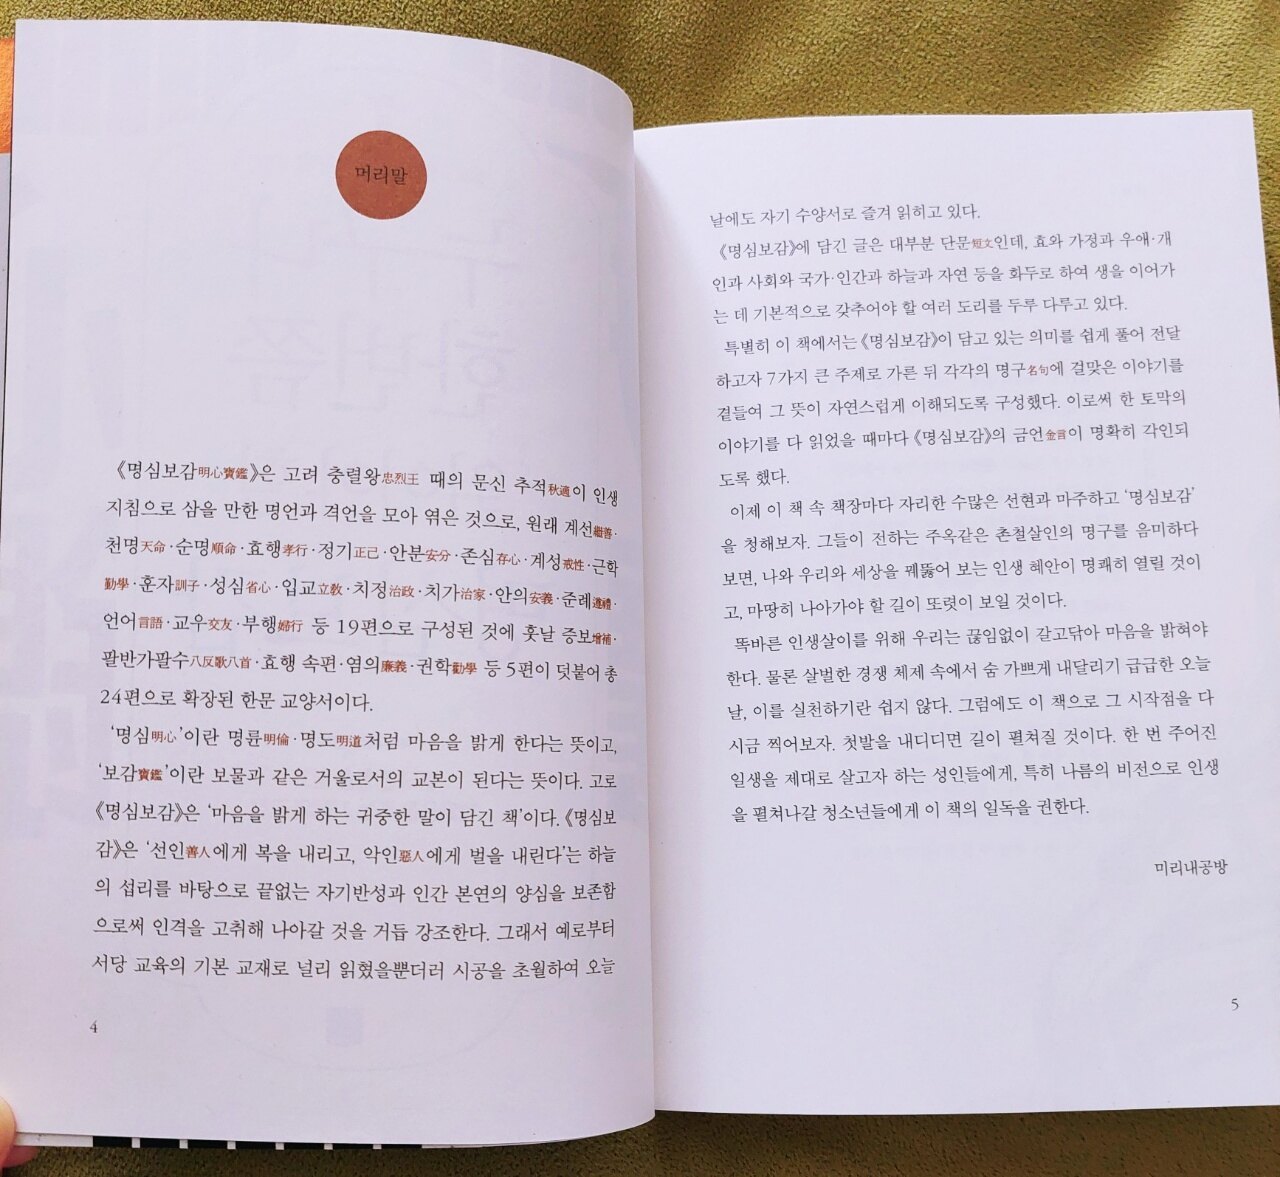 머리말
《명심보감明心寶鑑》은 고려 충렬왕忠烈王 때의 문신 추적秋適이 인생
지침으로 삼을 만한 명언과 격언을 모아 엮은 것으로, 원래 계선繼善·
천명天命·순명順命·효행孝行·정기正己·안분安分·존심存心·계성戒性·근학
勤學·훈자訓子·성심省心·입교立敎·치정治政·치가治家·안의安義·준례遵禮·
언어言語·교우交友·부행婦行 등 19편으로 구성된 것에 훗날 증보增補·
팔반가팔수八反歌八首·효행 속편·염의廉義·권학勸學 등 5편이 덧붙어 총
24편으로 확장된 한문 교양서이다.
‘명심明心’이란 명륜明倫·명도明道처럼 마음을 밝게 한다는 뜻이고,
‘보감寶鑑’이란 보물과 같은 거울로서의 교본이 된다는 뜻이다. 고로
《명심보감》은 ‘마음을 밝게 하는 귀중한 말이 담긴 책’이다. 《명심보
감》은 ‘선인善人에게 복을 내리고, 악인惡人에게 벌을 내린다’는 하늘
의 섭리를 바탕으로 끝없는 자기반성과 인간 본연의 양심을 보존함
으로써 인격을 고취해 나아갈 것을 거듭 강조한다. 그래서 예로부터
서당 교육의 기본 교재로 널리 읽혔을뿐더러 시공을 초월하여 오늘
4
날에도 자기 수양서로 즐겨 읽히고 있다.
《명심보감》에 담긴 글은 대부분 단문短文인데, 효와 가정과 우애·개
인과 사회와 국가·인간과 하늘과 자연 등을 화두로 하여 생을 이어가
는 데 기본적으로 갖추어야 할 여러 도리를 두루 다루고 있다.
특별히 이 책에서는 《명심보감》이 담고 있는 의미를 쉽게 풀어 전달
하고자 7가지 큰 주제로 가른 뒤 각각의 명구名句에 걸맞은 이야기를
곁들여 그 뜻이 자연스럽게 이해되도록 구성했다. 이로써 한 토막의
이야기를 다 읽었을 때마다 《명심보감》의 금언金言이 명확히 각인되
도록 했다.
이제 이 책 속 책장마다 자리한 수많은 선현과 마주하고 ‘명심보감’
을 청해보자. 그들이 전하는 주옥같은 촌철살인의 명구를 음미하다
보면, 나와 우리와 세상을 꿰뚫어 보는 인생 혜안이 명쾌히 열릴 것이
고, 마땅히 나아가야 할 길이 또렷이 보일 것이다.
똑바른 인생살이를 위해 우리는 끊임없이 갈고닦아 마음을 밝혀야
한다. 물론 살벌한 경쟁 체제 속에서 숨 가쁘게 내달리기 급급한 오늘
날, 이를 실천하기란 쉽지 않다. 그럼에도 이 책으로 그 시작점을 다
시금 찍어보자. 첫발을 내디디면 길이 펼쳐질 것이다. 한 번 주어진
일생을 제대로 살고자 하는 성인들에게, 특히 나름의 비전으로 인생
을 펼쳐나갈 청소년들에게 이 책의 일독을 권한다.
미리내공방
5